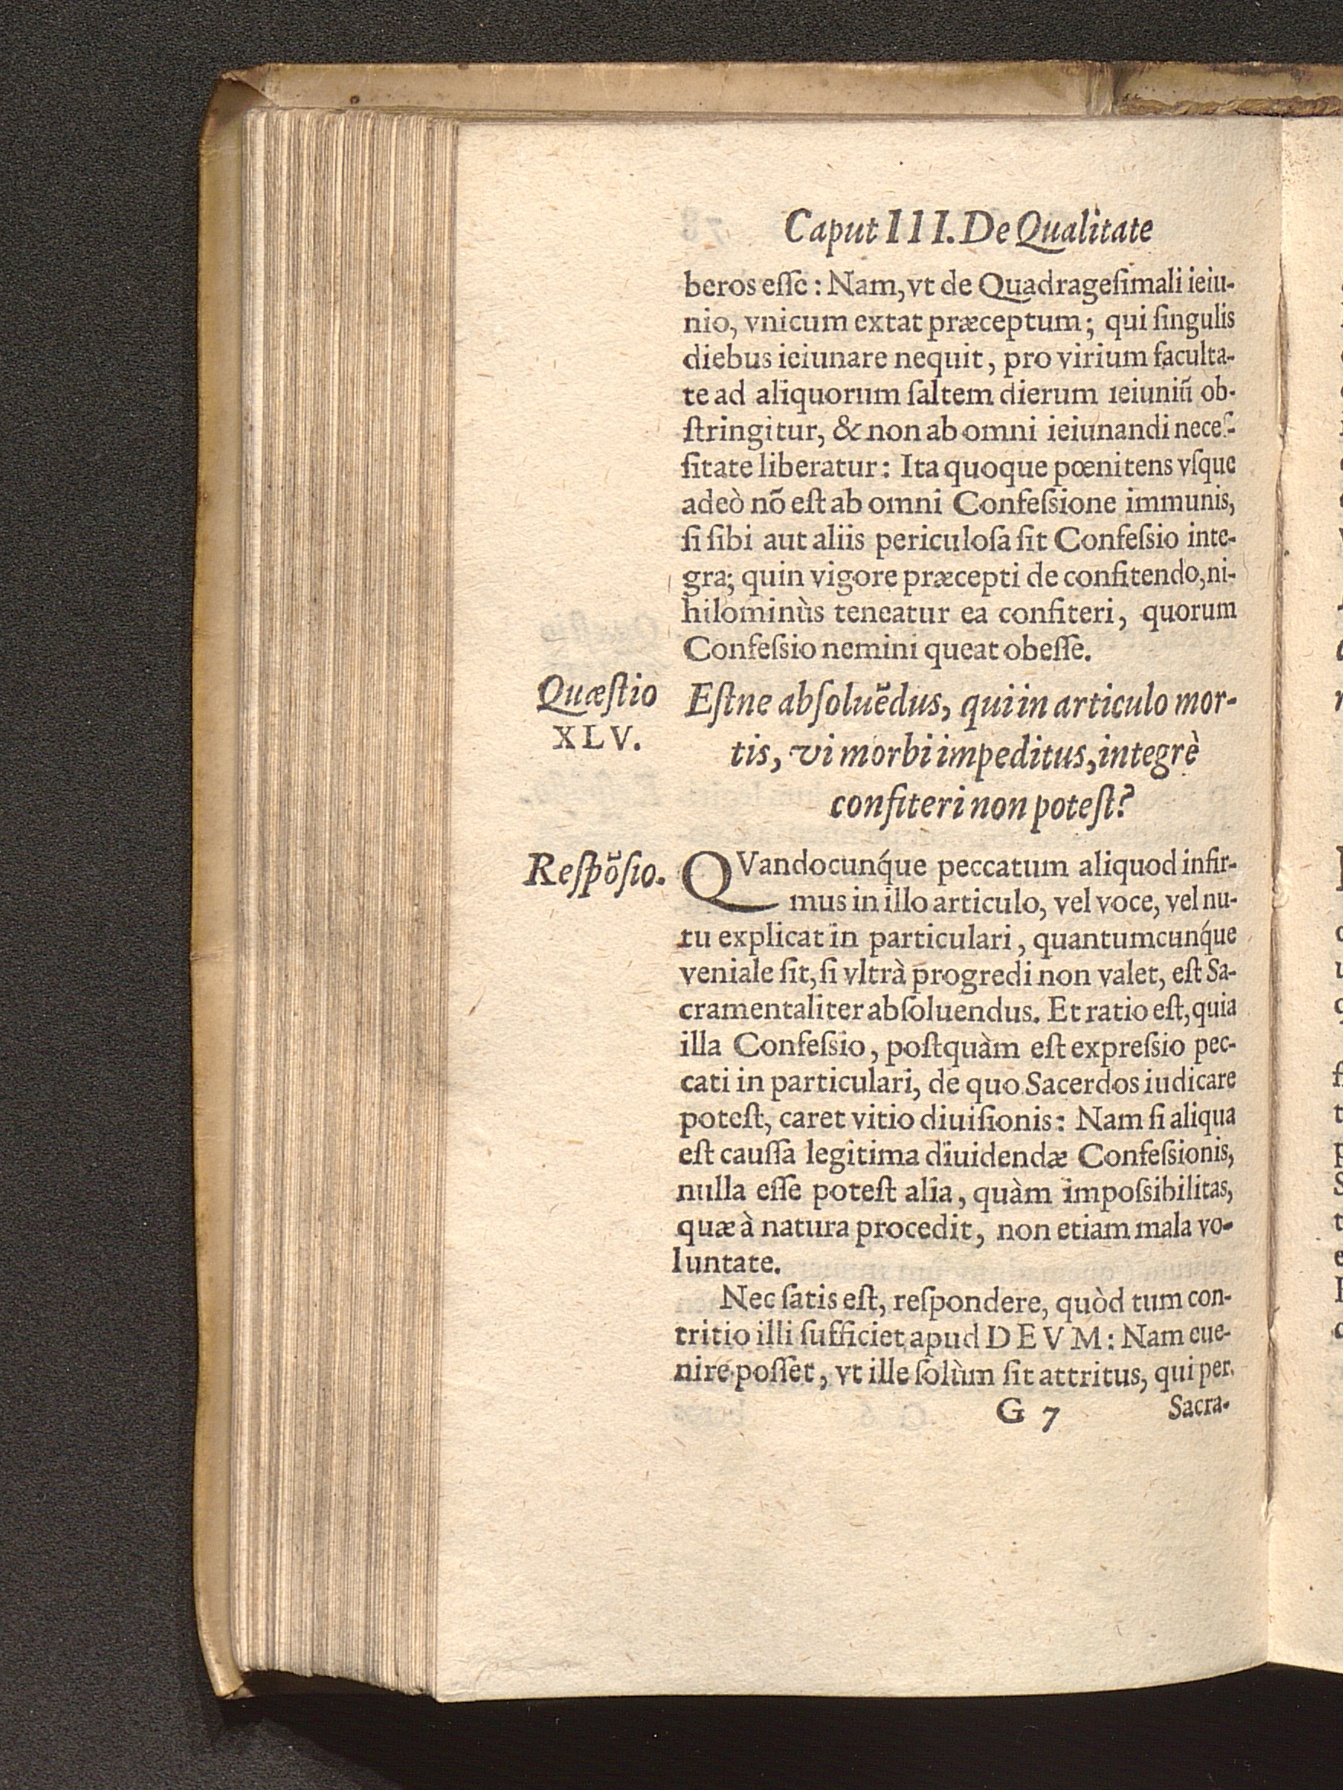 Caput III. De Qualitate
beros eſſe: Nam, vt de Quadrageſimali ieiu-
nio, vnicum extat præceptum; qui ſingulis
diebus ieiunare nequit, pro virium faculta-
te ad aliquorum ſaltem dierum ieiuniũ ob-
ſtringitur, & non ab omni ieiunandi neceſ-
ſitate liberatur: Ita quoque pœnitens vſque
adeò nõ eſt ab omni Confeſsione immunis,
ſi ſibi aut aliis periculoſa ſit Confeſsio inte-
gra; quin vigore præcepti de confitendo, ni-
hilominùs teneatur ea confiteri, quorum
Confeſsio nemini queat obeſſe.
Quæſtio
XLV.
Eſtne abſoluẽdus, qui in articulo mor-
tis, vi morbi impeditus, integrè
confiteri non poteſt?
Reſpõſio.
QVandocunq́ue peccatum aliquod infir-
mus in illo articulo, vel voce, vel nu-
tu explicat in particulari, quantumcunq́ue
veniale ſit, ſi vltrà progredi non valet, eſt Sa-
cramentaliter abſoluendus. Et ratio eſt, quia
illa Confeſsio, poſtquàm eſt expreſsio pec-
cati in particulari, de quo Sacerdos iudicare
poteſt, caret vitio diuiſionis: Nam ſi aliqua
eſt cauſſa legitima diuidendæ Confeſsionis,
nulla eſſe poteſt alia, quàm impoſsibilitas,
quæ à natura procedit, non etiam mala vo-
luntate.
Nec ſatis eſt, reſpondere, quòd tum con-
tritio illi ſufficiet apud DEVM: Nam eue-
nire poſſet, vt ille ſolùm ſit attritus, qui per
G 7
Sacra-